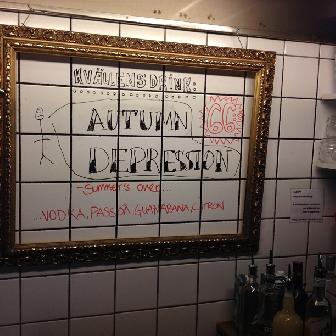 KVÄLLENS DRINK:
AUTUMN 66
DEPRESSION
-Summer's over...
...VODKA, PASSOÃ, GUANABANA, CITRON